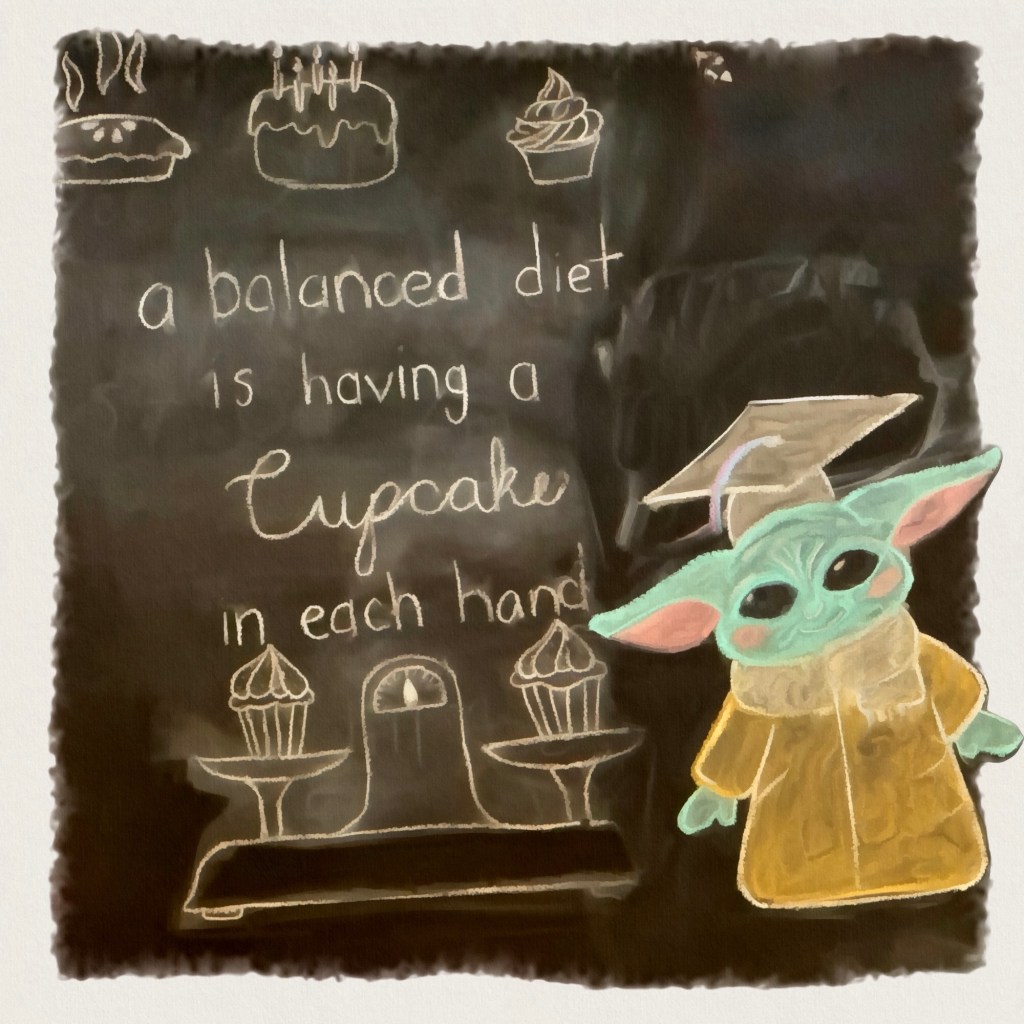 a balanced diet
is having a
Cupcake
in each hand